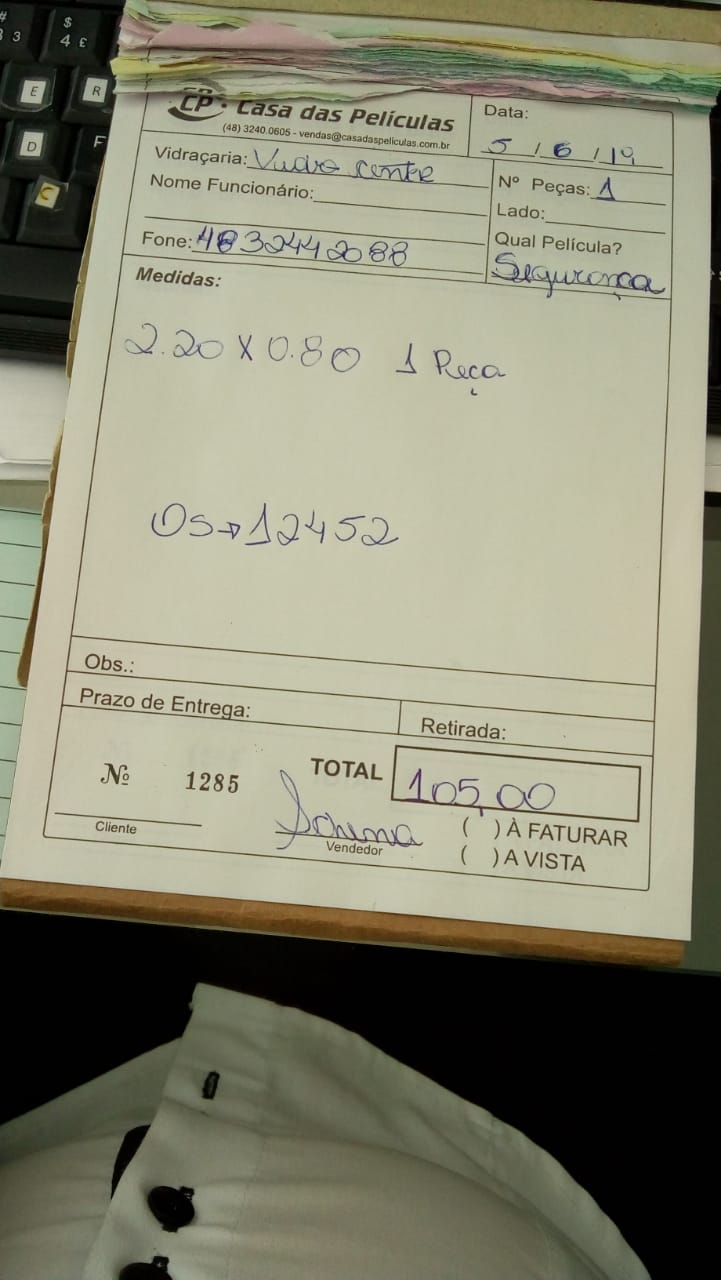 # 3
$
4 £
E
R
D
F
C
CP Casa das Películas
(48) 3240.0605 - vendas@casadaspeliculas.com.br
Data:
5 / 6 / 19
Vidraçaria: Vidro center
Nº Peças: 1
Nome Funcionário:
Lado:
Fone: 4832442088
Qual Película?
Segurança
Medidas:
2.20 X 0.80 1 Peça
OS→12452
Obs.:
Prazo de Entrega:
Retirada:
Nº 1285
TOTAL 105,00
Cliente
Vendedor
( ) À FATURAR
( ) A VISTA